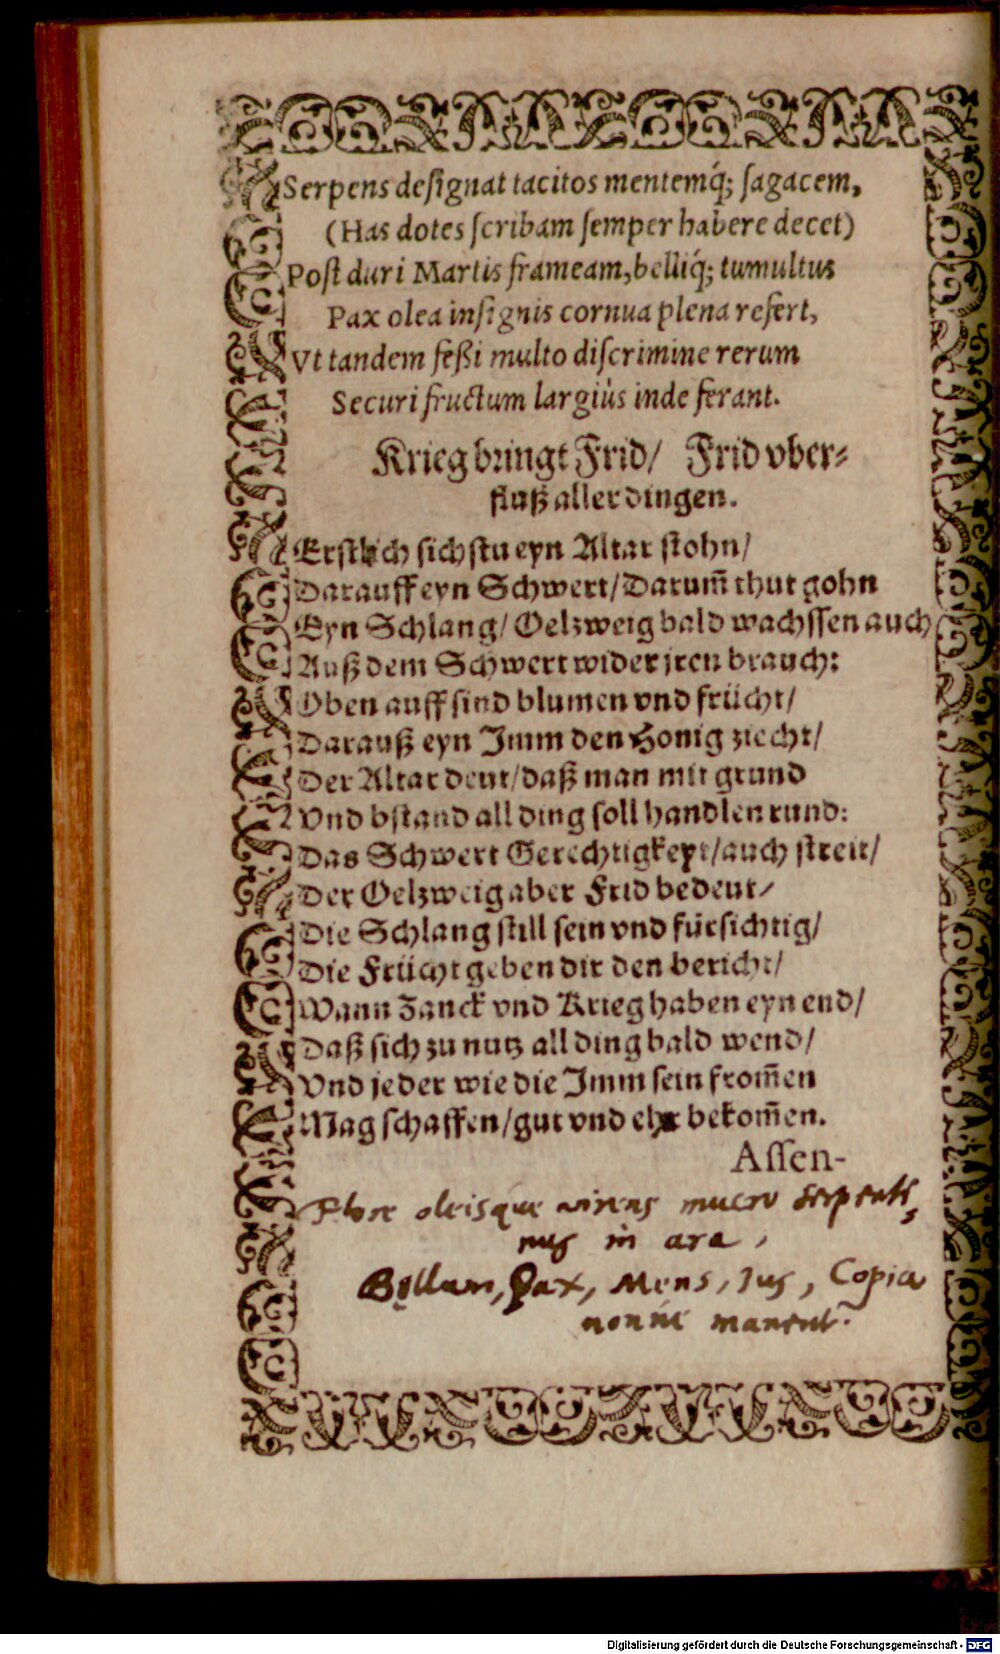 Serpens deſignat tacitos mentemq́; ſagacem,
(Has dotes ſcribam ſemper habere decet)
Poſt duri Martis frameam, belliq́; tumultus
Pax olea inſignis cornua plena refert,
Vt tandem feßi multo diſcrimine rerum
Securi fructum largiùs inde ferant.
Krieg bringt Frid/ Frid vber⸗
fluß aller dingen.
Erstlich sichstu eyn Altar stohn/
Darauff eyn Schwert/Darum̃ thut gohn
Eyn Schlang/ Oelzweig bald wachſſen auch
Auß dem Schwert wider jren brauch:
Oben auff sind blumen vnd frücht/
Darauß eyn Imm den Honig ziecht/
Der Altar deut/daß man mit grund
Vnd bſtand all ding ſoll handlen rund:
Das Schwert Gerechtigkeyt/auch ſtreit/
Der Oelzweig aber Frid bedeut/
Die Schlang ſtill ſein vnd fürſichtig/
Die Frücht geben dir den bericht/
Wann Zanck vnd Krieg haben eyn end/
Daß ſich zu nutz all ding bald wend/
Vnd jeder wie die Imm ſein from̃en
Mag ſchaffen/gut vnd ehr bekom̃en.
Aſſen-
Flore oleisque virens mucro serpenti,
nus in ara,
Bellum, Pax, Mens, Ius, Copia
nonne manent?
Digitalisierung gefördert durch die Deutsche Forschungsgemeinschaft - DFG